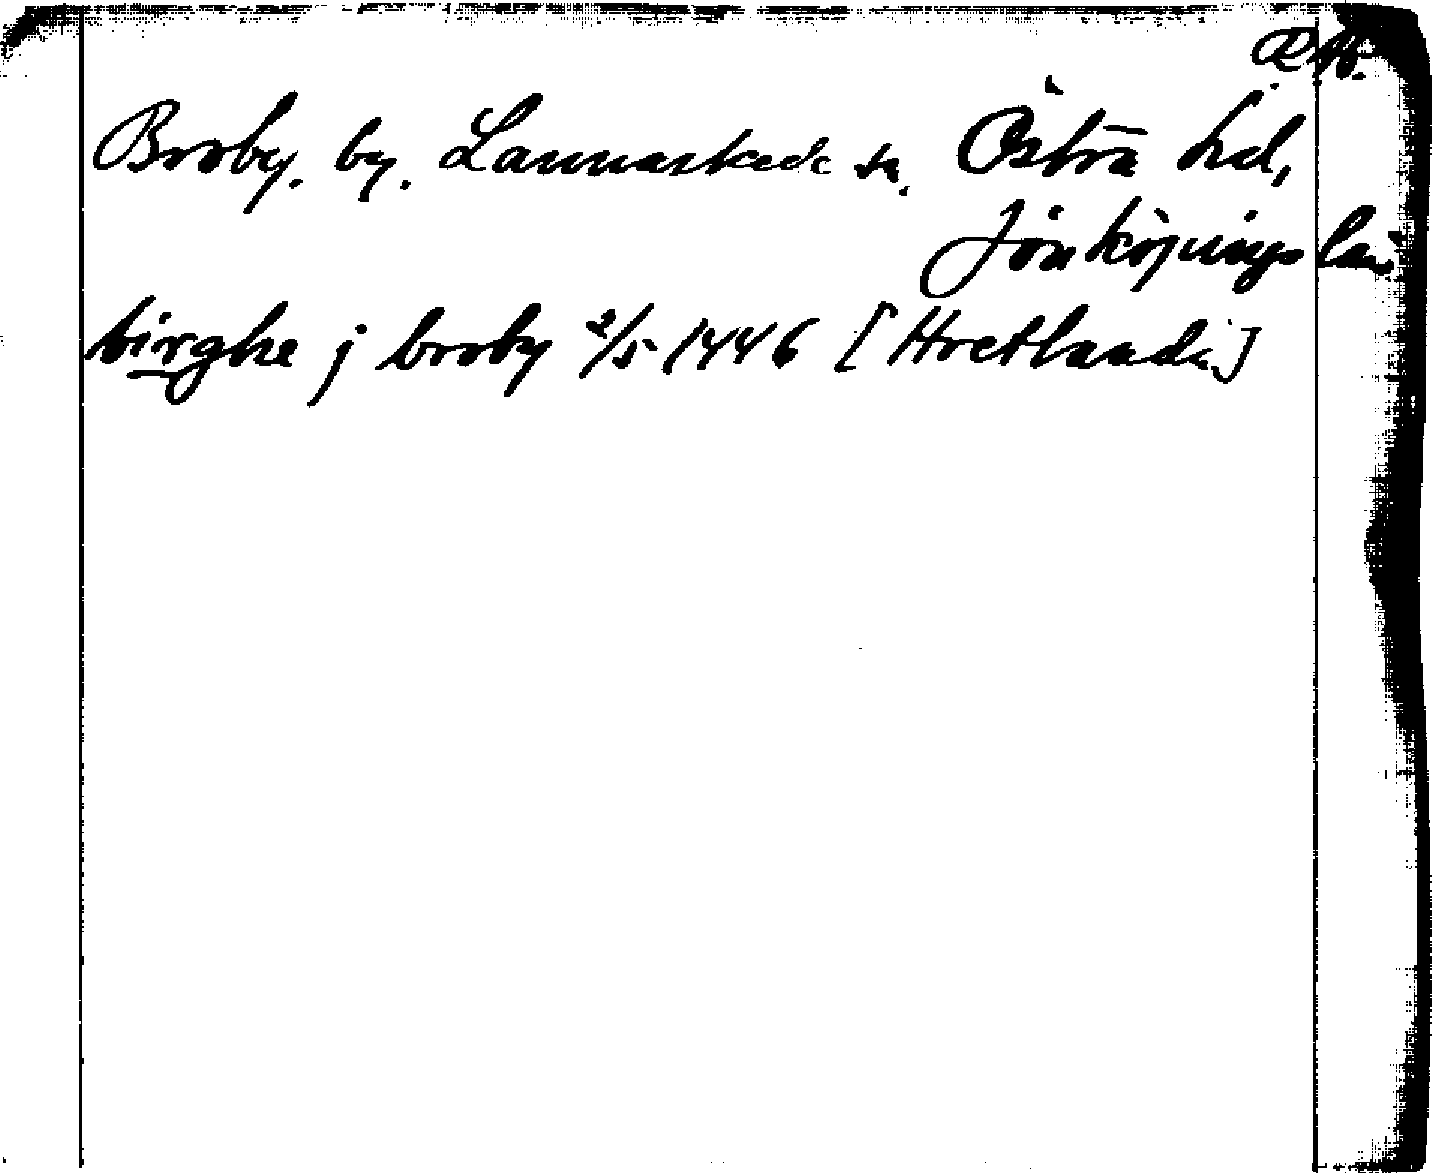 Broby. by. Lannaskede sn. Östra hd,
Jönköpings län
birghe j broby 2/5 1446 [Hvetlanda]